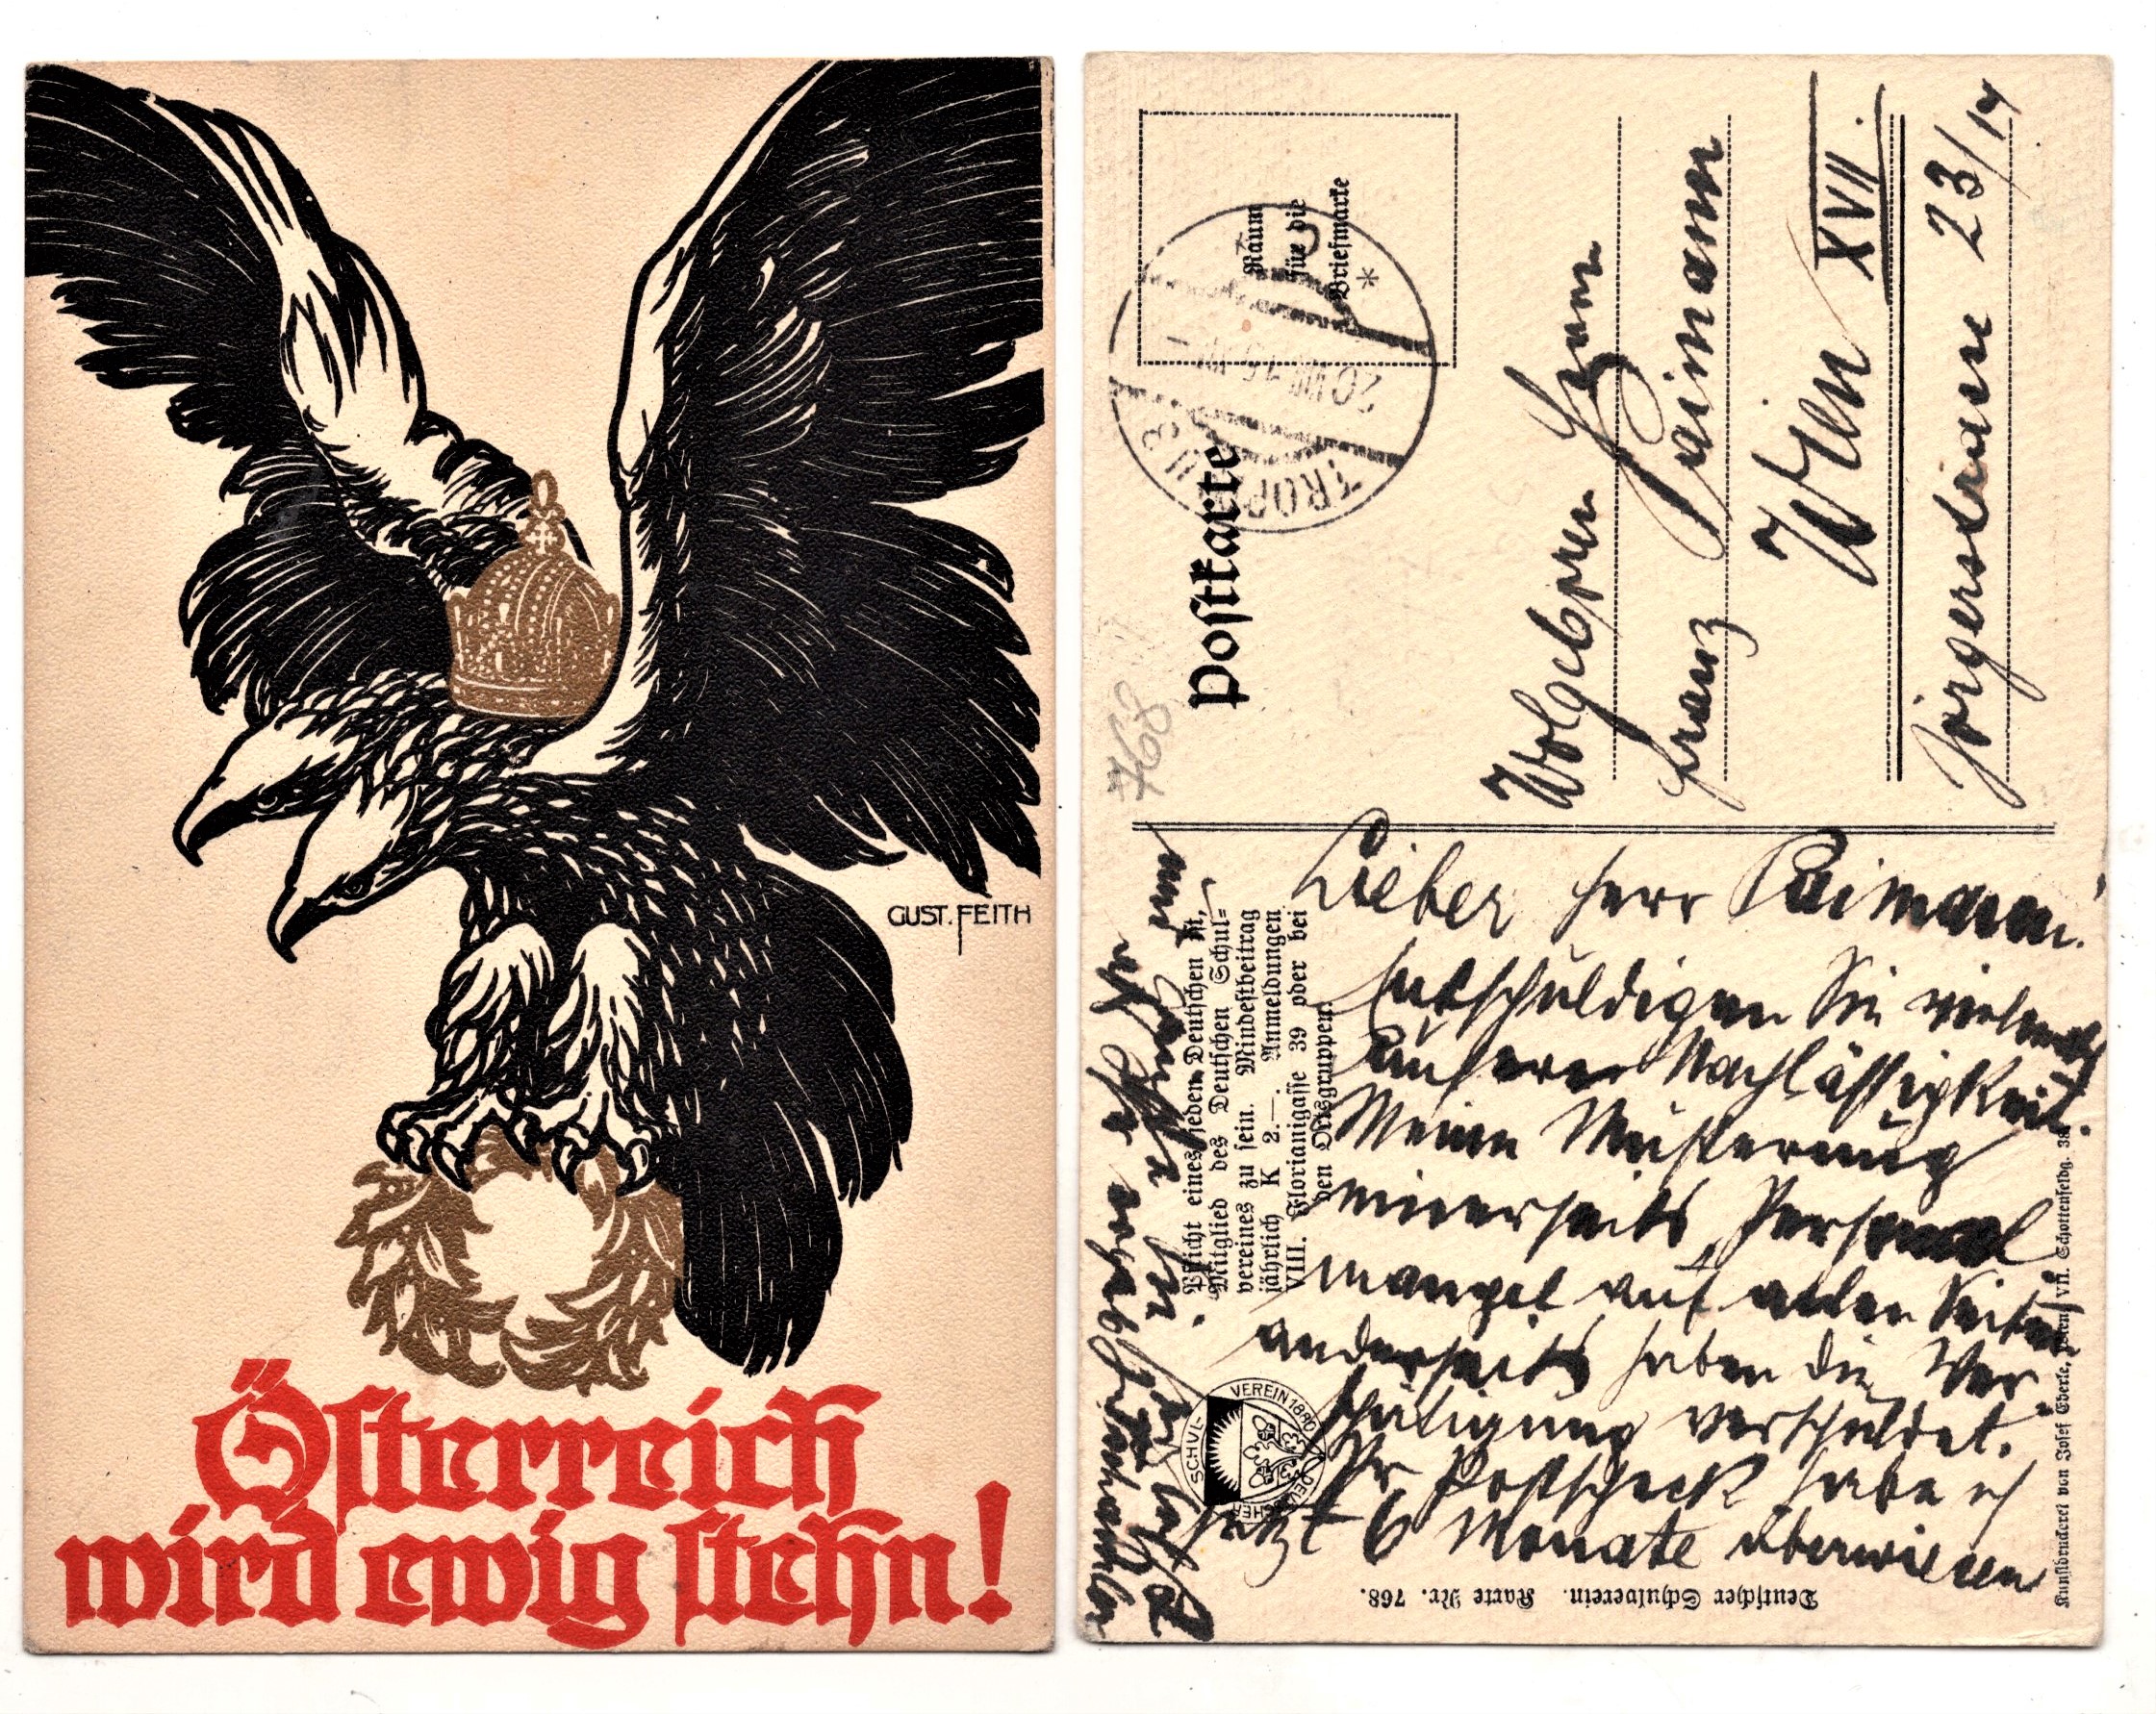 GUST. FEITH
Österreich
wird ewig stehn!
Postkarte
Raum
für die
Briefmarke
*
TROPPAU 3
20 VIII 15
768
Wolgeboren Herrn
Franz Paimann
Wien XVII.
Jörgerstrasse 23/14
Pflicht eines jeden Deutschen ist,
Mitglied des Deutschen Schul-
vereines zu sein. Mindestbeitrag
jährlich K 2.—. Anmeldungen
VIII. Florianigasse 39 oder bei
den Ortsgruppen.
DEUTSCHER SCHUL-VEREIN 1880
Lieber Herr Paimann!
Entschuldigen Sie vielmals
unsere Nachlässigkeit.
Meine Musterung
einerseits, Personal
mangel auf allen Seiten
anderseits haben die Ver-
verschuldet.
Per Postscheck habe ich
jetzt 6 Monate überwiesen
und
Deutscher Schulverein. Karte Nr. 768.
Kunstdruckerei von Josef Eberle, Wien, VII. Schottenfeldg. 38